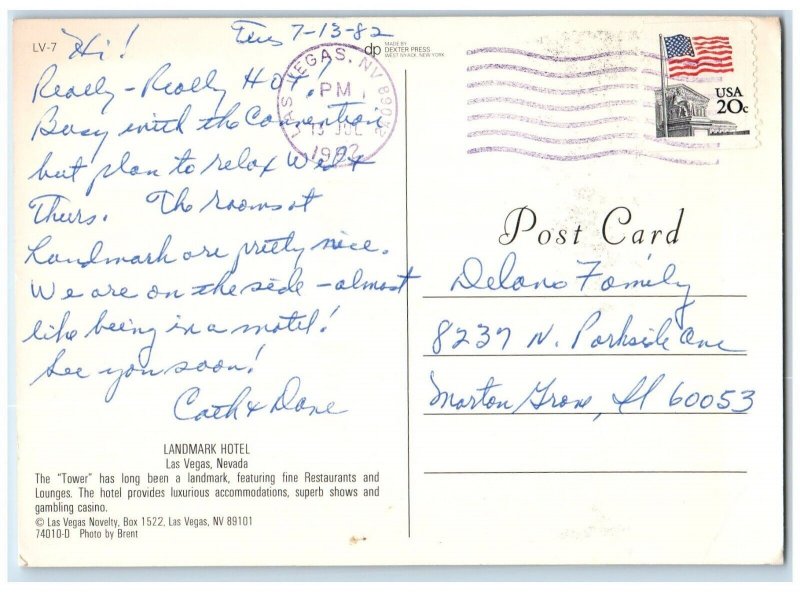 LV-7
Tues 7-13-82
Hi!
Really - Really HOT!
Busy with the Convention
but plan to relax Wed +
Thurs. The rooms at
Landmark are pretty nice.
We are on the side - almost
like being in a motel!
See you soon!
Cath & Dave
LANDMARK HOTEL
Las Vegas, Nevada
The "Tower" has long been a landmark, featuring fine Restaurants and
Lounges. The hotel provides luxurious accommodations, superb shows and
gambling casino.
© Las Vegas Novelty, Box 1522, Las Vegas, NV 89101
74010-D Photo by Brent
dp MADE BY
DEXTER PRESS
WEST NYACK, NEW YORK
LAS VEGAS, NV
PM
13 JUL
1982
USA
20c
Post Card
Delano Family
8237 N. Parkside Ave
Morton Grove, Il 60053